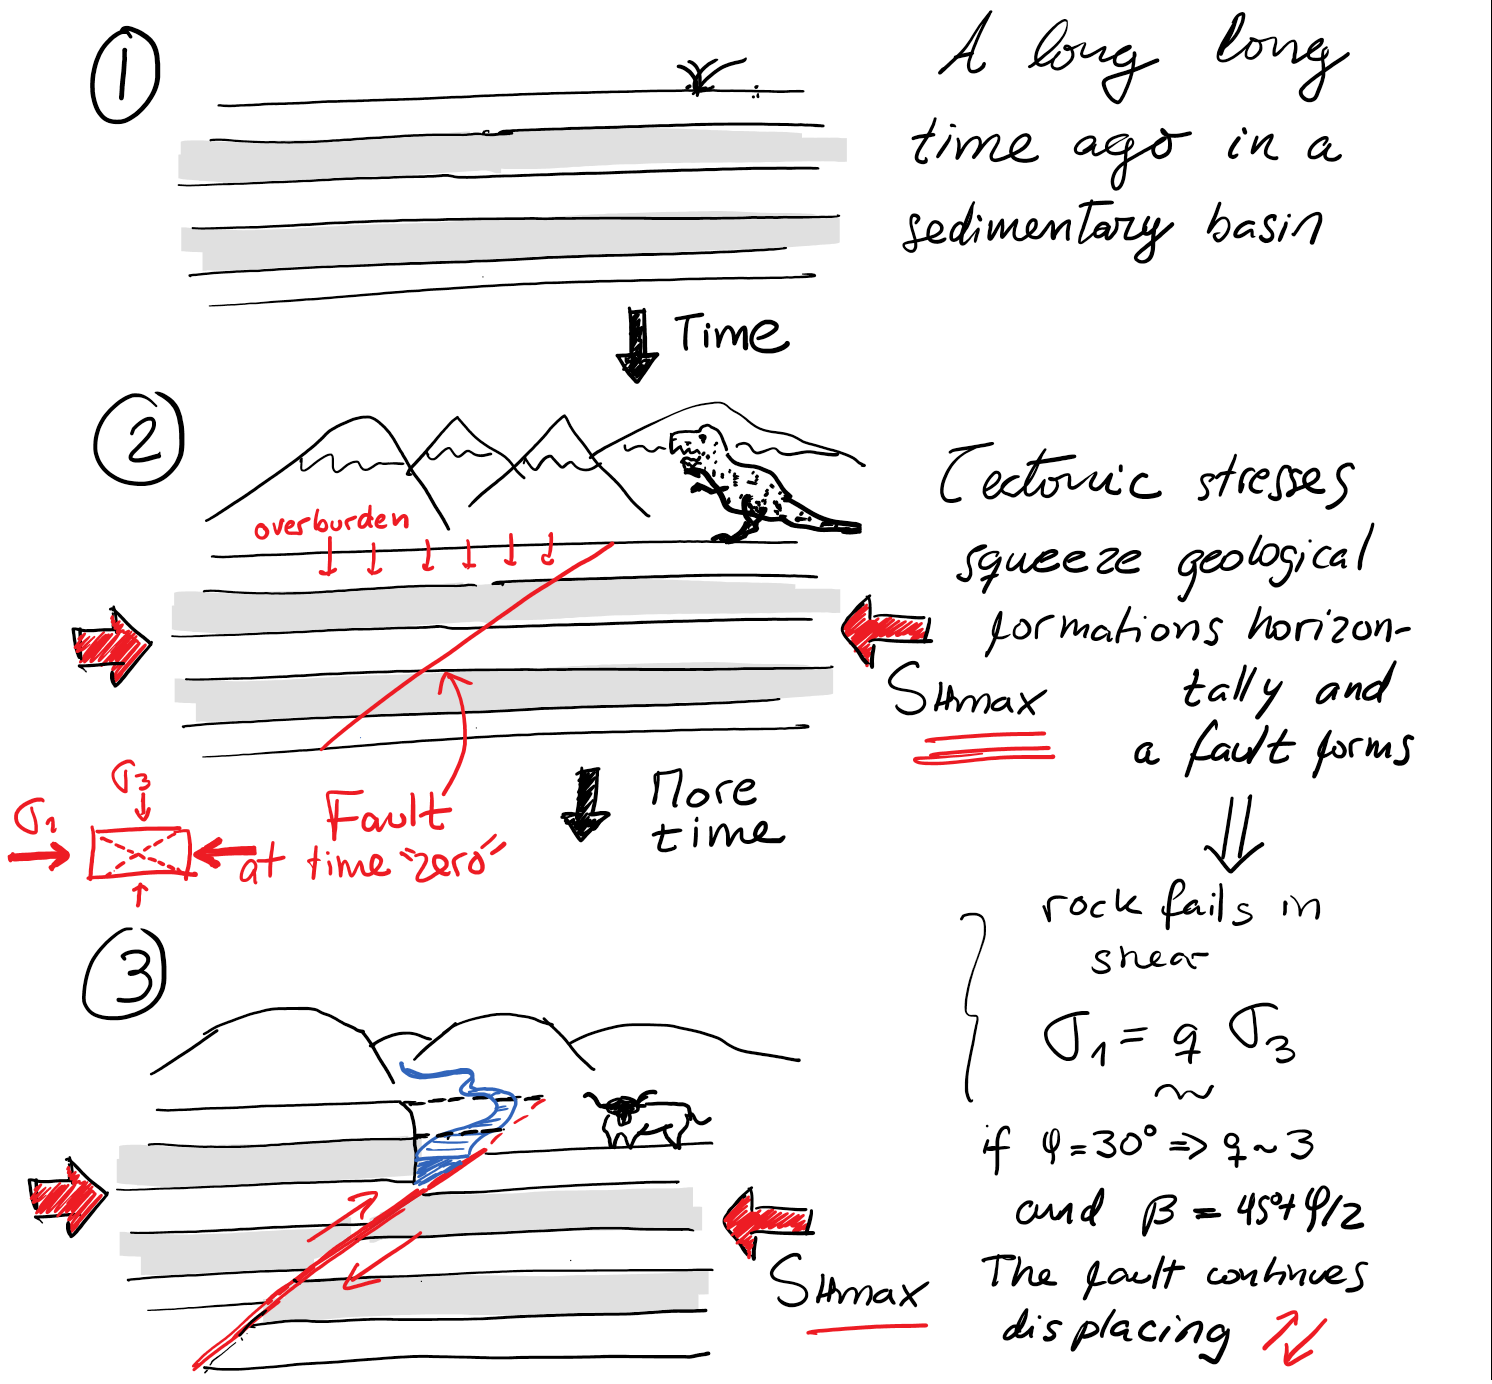 ①
A long long
time ago in a
sedimentary basin
Time
②
overburden
Tectonic stresses
squeeze geological
formations horizon-
tally and
a fault forms
SHmax
σ3
σ1
Fault
at time "zero"
More
time
rock fails in
shear
σ1 = q σ3
if φ = 30° => q ~ 3
and β = 45°+φ/2
The fault continues
displacing
③
SHmax